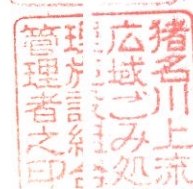 猪名川上流
広域ごみ処
理施設組合
管理者之印